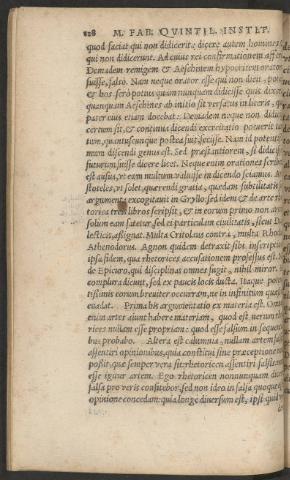 128 M. FAB. QVINTIL. INSTIT.
quod faciat qui non didicerit: dicere autem homines &
qui non didicerunt. Ad cuius rei confirmationem affer
Demadem remigem & Aeschinem hypocritem orator
fuisse, falso. Nam neque orator esse qui non didi pot
& hos serò potius quàm nunquam didicisse quis dixer
quanquam Aeschines ab initio sit versatus in literis, q
pater eius etiam docebat: Demadem neque non didi
certum sit, & continua dicendi exercitatio potuerit
tum, quantuscunque postea fuit, fecisse. Nam id potenti
mum discendi genus est. Sed præstantiorem, si didic
futurum fuisse dicere licet. Neque enim orationes scrib
est ausus, vt eam multum valuisse in dicendo sciamus. A
stoteles, vt solet, quærendi gratia, quædam subtilitatis
argumenta excogitauit in Gryllo: sed idem & de arte
torica tres libros scripsit, & in eorum primo non ar
solùm eam fatetur, sed ei particulam ciuilitatis, sicut D
lectices, assignat. Multa Critolaus contra, multa Rhod
Athenodorus. Agnon quidem detraxit sibi inscriptio
ipsa fidem, qua rhetorices accusationem professus est. N
de Epicuro, qui disciplinas omnes fugit, nihil miror.
complura dicunt, sed ex paucis locis ducta. Itaque po
tissimis eorum breuiter occurram, ne in infinitum quæ
euadat. Prima his argumentatio ex materia est. Om
enim artes aiunt habere materiam, quod est verum
rices nullam esse propriam: quod esse falsum in sequen
bus probabo. Altera est calumnia, nullam artem fal
assentiri opinionibus, quia constitui sine præceptione
possit, quæ semper vera sit: rhetoricen assentiri falsis: non
esse igitur artem. Ego rhetoricen nonnunquam dic
falsa pro veris confitebor: sed non ideo in falsa quoque
opinione concedam: quia longè diuersum est, ipsi quid